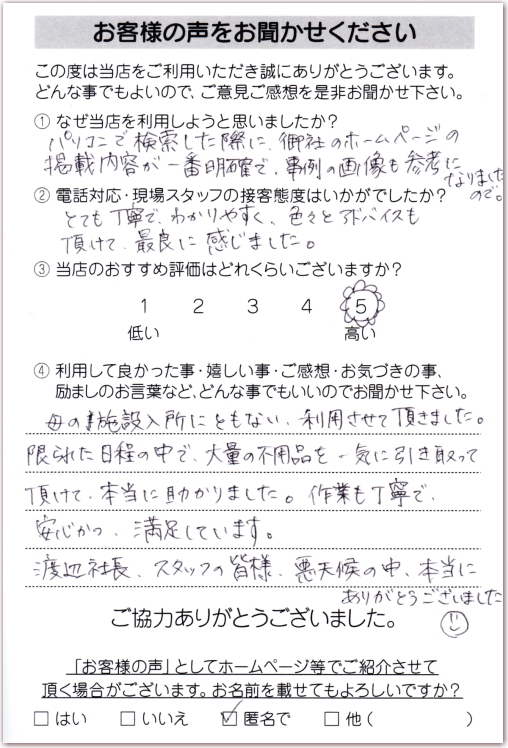 お客様の声をお聞かせください
この度は当店をご利用いただき誠にありがとうございます。
どんな事でもよいので、ご意見ご感想を是非お聞かせ下さい。
① なぜ当店を利用しようと思いましたか?
パソコンで検索した際に、御社のホームページの
掲載内容が一番明確で、事例の画像も参考に
なりました
ので。
② 電話対応・現場スタッフの接客態度はいかがでしたか?
とても丁寧で、わかりやすく、色々とアドバイスも
頂けて、最良に感じました。
③ 当店のおすすめ評価はどれくらいございますか?
1 2 3 4 5
低い 高い
④ 利用して良かった事・嬉しい事・ご感想・お気づきの事、
励ましのお言葉など、どんな事でもいいのでお聞かせ下さい。
母の施設入所にともない、利用させて頂きました。
限られた日程の中で、大量の不用品を一気に引き取って
頂けて、本当に助かりました。作業も丁寧で、
安心かつ、満足しています。
渡辺社長、スタッフの皆様、悪天候の中、本当に
ありがとうございました
ご協力ありがとうございました。
「お客様の声」としてホームページ等でご紹介させて
頂く場合がございます。お名前を載せてもよろしいですか?
□ はい □ いいえ ☑ 匿名で □ 他( )